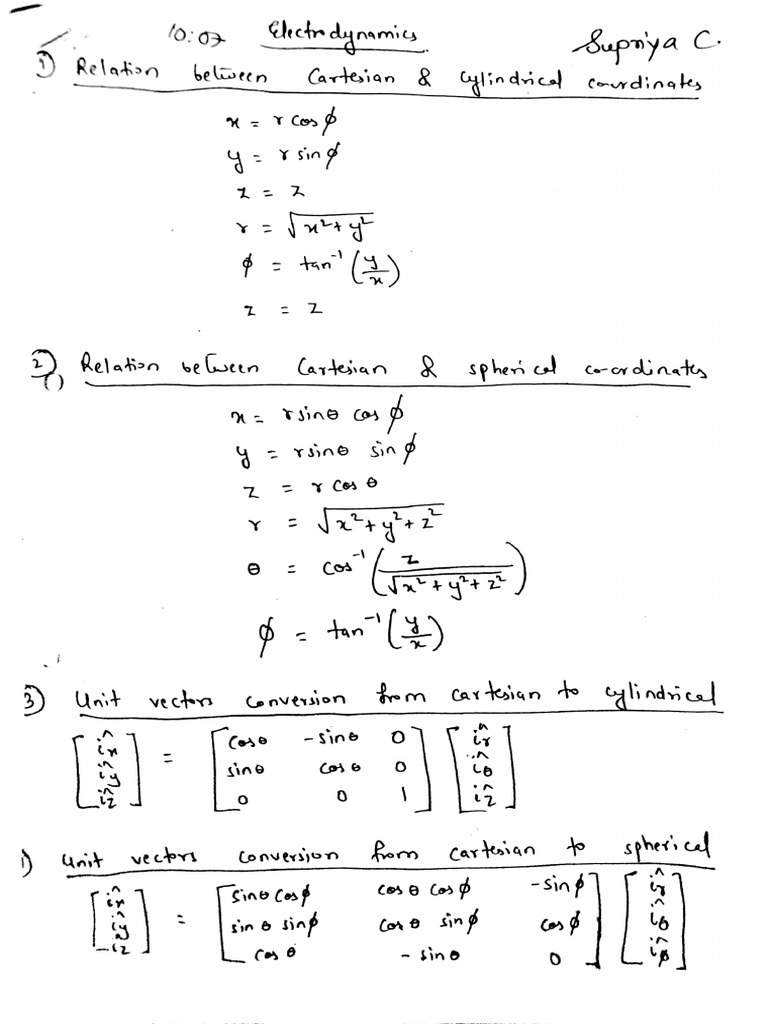 10:07 Electrodynamics Supriya C.
1) Relation between Cartesian & cylindrical courdinates
x = r cos φ
y = r sin φ
z = z
r = √(x² + y²)
φ = tan⁻¹ (y/x)
z = z
2) Relation between Cartesian & spherical co-ordinates
()
x = r sin θ cos φ
y = r sin θ sin φ
z = r cos θ
r = √(x² + y² + z²)
θ = cos⁻¹ (z/√(x² + y² + z²))
φ = tan⁻¹ (y/x)
3) Unit vectors conversion from cartesian to cylindrical
[îx] = [cos θ -sin θ 0] [îr]
[îy] [sin θ cos θ 0] [îθ]
[îz] [0 0 1] [îz]
1) Unit vectors conversion from cartesian to spherical
[îx] = [sin θ cos φ cos θ cos φ -sin φ] [îr]
[îy] [sin θ sin φ cos θ sin φ cos φ] [îθ]
[îz] [cos θ -sin θ 0] [îφ]